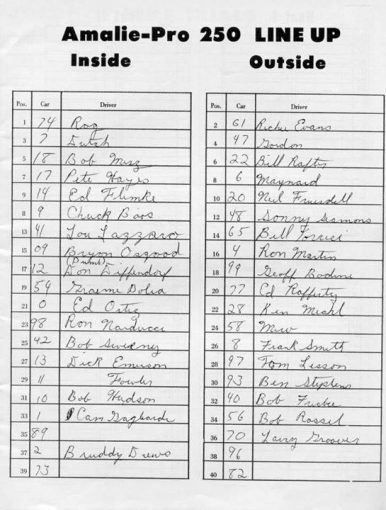 Amalie-Pro 250 LINE UP
Inside
Outside
Pos. Car Driver
1 74 Rog
3 7 Dutch
5 18 Bob
7 17 Pete Hayes
9 14 Ed Flemke
11 9 Chuck Boos
13 41 Lou Lazzaro
15 09 Bryon Osgood
17 12 Don Diffendorf
19 54 Graeme Bolia
21 0 Ed Ortiz
23 98 Ron Narducci
25 42 Bob Sweeney
27 13 Dick Emerson
29 11 Fowler
31 10 Bob Hudson
33 1 Cam Gagliardi
35 89
37 2 Bruddy Drews
39 73
Pos. Car Driver
2 61 Richie Evans
4 47 Gordon
6 22 Bill Rafter
8 6 Maynard
10 20 Neil
12 48 Sonny Seamons
14 65 Bill
16 4 Ron Martin
18 99 Geoff Bodine
20 77 Ed Rafferty
22 28 Ken Meahl
24 58
26 8 Frank Smith
28 97 Tom Lisson
30 93 Ben Stystens
32 40 Bob
34 56 Bob Rossel
36 70 Larry Grooves
38 96
40 82